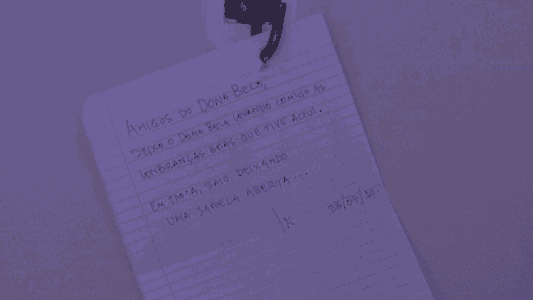 AMIGOS DO DONA BELA,
DEIXO O DONA BELA LEVANDO COMIGO AS
LEMBRANÇAS BOAS QUE TIVE AQUI.
E SAIO DEIXANDO
UMA JANELA ABERTA...
K